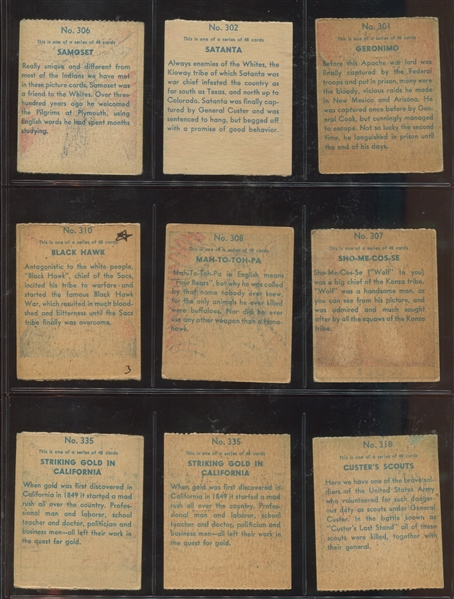 No. 306
This is one of a series of 48 cards
SAMOSET
Really unique and different from
most of the Indians we have met
in these picture cards, Samoset was
a friend to the Whites. Over three
hundred years ago he welcomed
the Pilgrims at Plymouth, using
English words he had spent months
studying.
No. 302
This is one of a series of 48 cards
SATANTA
Always enemies of the Whites, the
Kioway tribe of which Satanta was
war chief infested the country as
far south as Texas, and north up to
Colorado. Satanta was finally cap-
tured by General Custer and was
sentenced to hang, but begged off
with a promise of good behavior.
No. 301
This is one of a series of 48 cards
GERONIMO
Before this Apache war lord was
finally captured by the Federal
troops and put in prison, many were
the bloody, vicious raids he made
in New Mexico and Arizona. He
was captured once before by Gen-
eral Cook, but cunningly managed
to escape. Not so lucky the second
time, he languished in prison until
the end of his days.
No. 310
This is one of a series of 48 cards
BLACK HAWK
Antagonistic to the white people,
"Black Hawk", chief of the Sacs,
incited his tribe to warfare and
started the famous Black Hawk
War, which resulted in much blood-
shed and bitterness until the Sacs
tribe finally was overcome.
3
No. 308
This is one of a series of 48 cards
MAH-TO-TOH-PA
Mah-To-Toh-Pa in English means
"Four Bears", but why he was called
by that name nobody ever knew
for the only animals he ever killed
were buffaloes. Nor did he ever
use any other weapon than a toma-
hawk.
No. 307
This is one of a series of 48 cards
SHO-ME-COS-SE
Sho-Me-Cos-Se ("Wolf" to you)
was a big chief of the Konza tribe.
"Wolf" was a handsome man, as
you can see from his picture, and
was admired and much sought
after by all the squaws of the Konza
tribe.
No. 335
This is one of a series of 48 cards
STRIKING GOLD IN
CALIFORNIA
When gold was first discovered in
California in 1849 it started a mad
rush all over the country. Profes-
sional man and laborer, school
teacher and doctor, politician and
business men—all left their work in
the quest for gold.
No. 335
This is one of a series of 48 cards
STRIKING GOLD IN
CALIFORNIA
When gold was first discovered in
California in 1849 it started a mad
rush all over the country. Profes-
sional man and laborer, school
teacher and doctor, politician and
business men—all left their work in
the quest for gold.
No. 318
This is one of a series of 48 cards
CUSTER'S SCOUTS
Here we have one of the brave sol-
diers of the United States Army
who volunteered for such danger-
ous duty as scouts under General
Custer. In the battle known as
"Custer's Last Stand" all of these
scouts were killed, together with
their general.